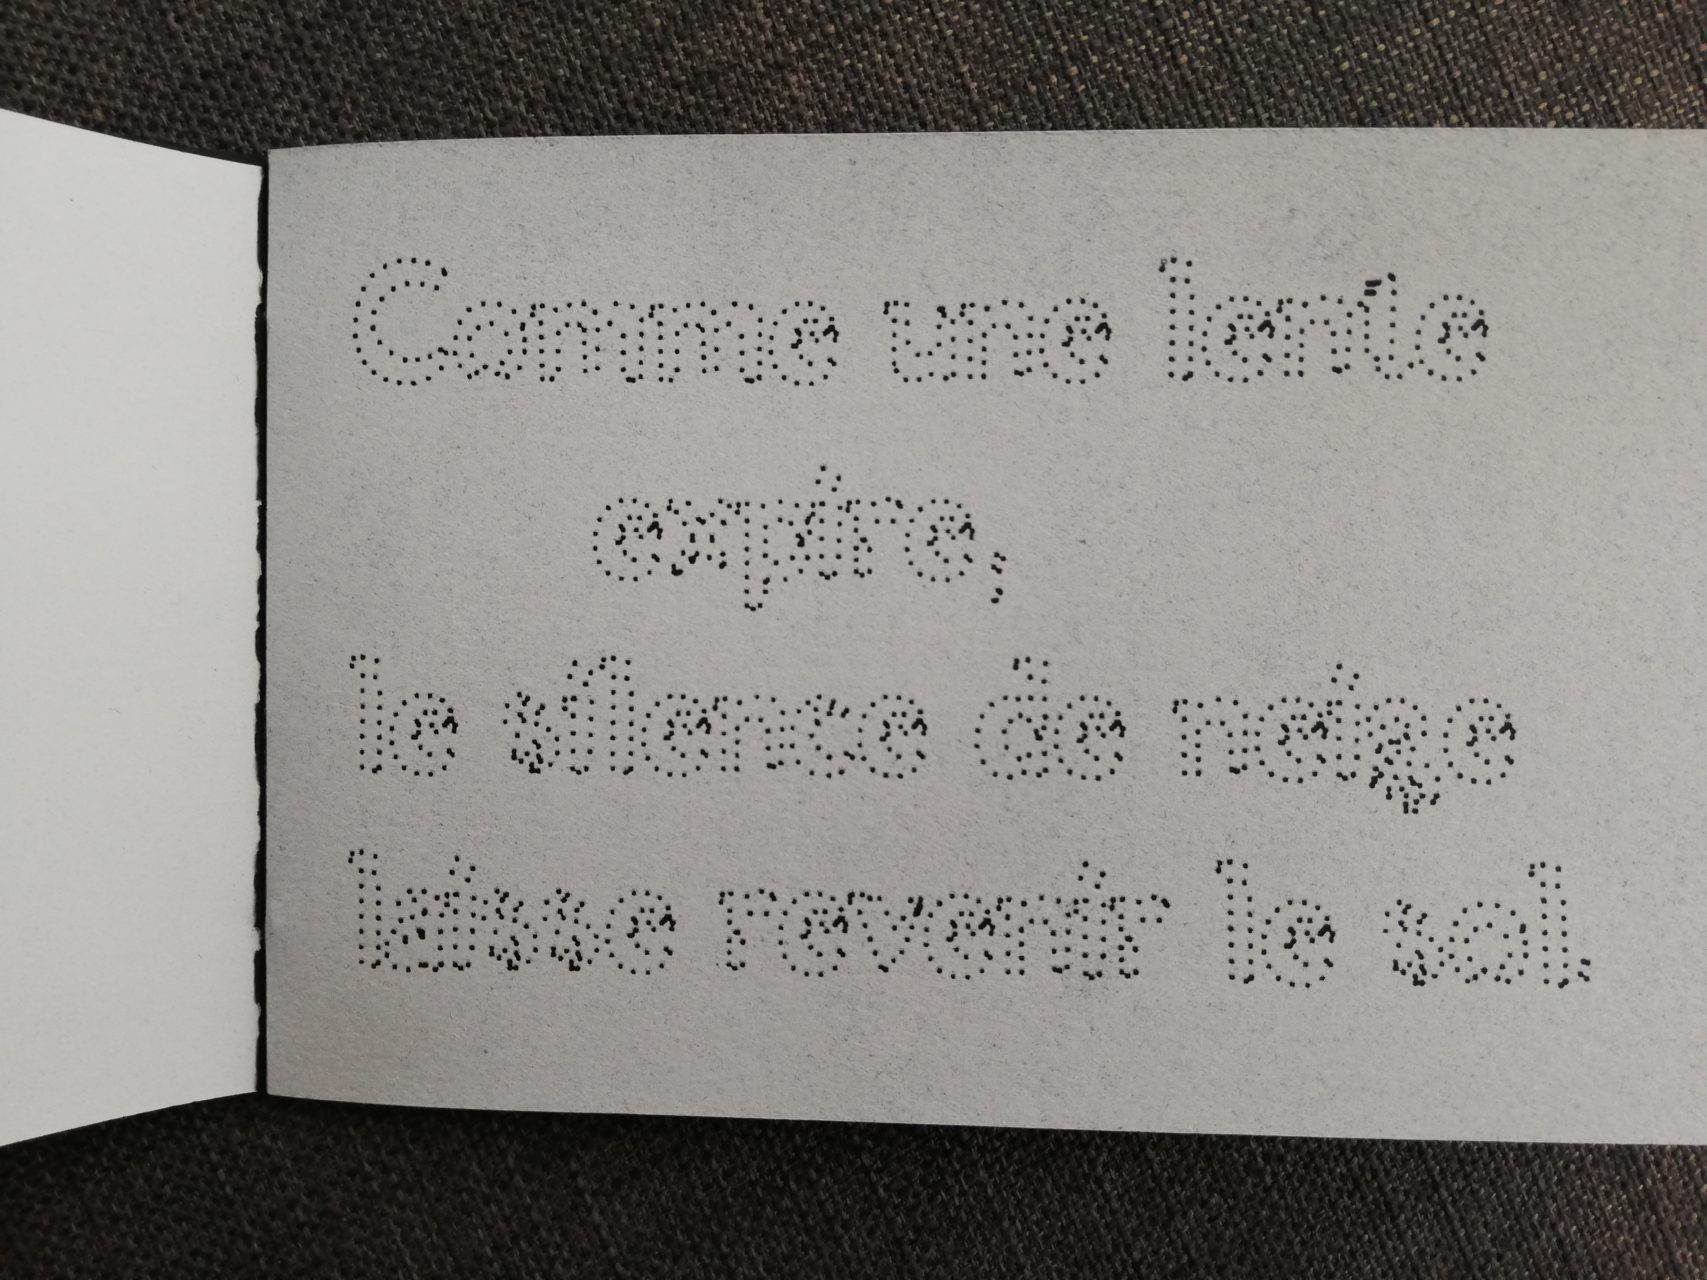 Comme une lente
expire,
le silence de neige
laisse revenir le sol.